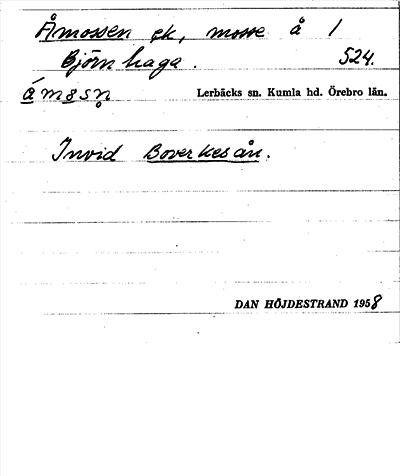 Åmossen ek, mosse å 1
Björnhaga. 524.
Lerbäcks sn. Kumla hd. Örebro län.
Invid Boverkesån.
DAN HÖJDESTRAND 1958